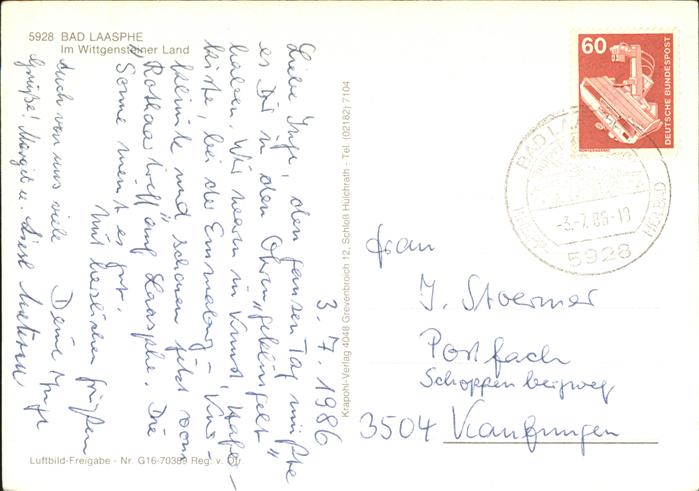 5928 BAD LAASPHE
Im Wittgensteiner Land
3. 7. 1986
Liebe Inge, den ganzen Tag müßte
es Dir in den Ohren „geklingelt"
haben. Wir waren in Kunst, Hafer-
kiste, bei der Einmalung - Kur-
klinik und schauen jetzt vom
Rothaar treff auf Laasphe. Die
Sonne meint es gut.
Mit herzlichen Grüßen
Deine Inge
Auch von uns viele
Grüße! Margit u.
Krapohl-Verlag 4048 Grevenbroich 12, Schloß Hülchrath - Tel. (02182) 7104
Luftbild-Freigabe - Nr. G16-70389 Reg. v. Df.
60
DEUTSCHE BUNDESPOST
RÖNTGENGERÄT
BAD LAASPHE
-3.-7.86-10
5928
Frau
J. Stoermer
Postfach
Schoppenbergweg
3504 Kaufungen